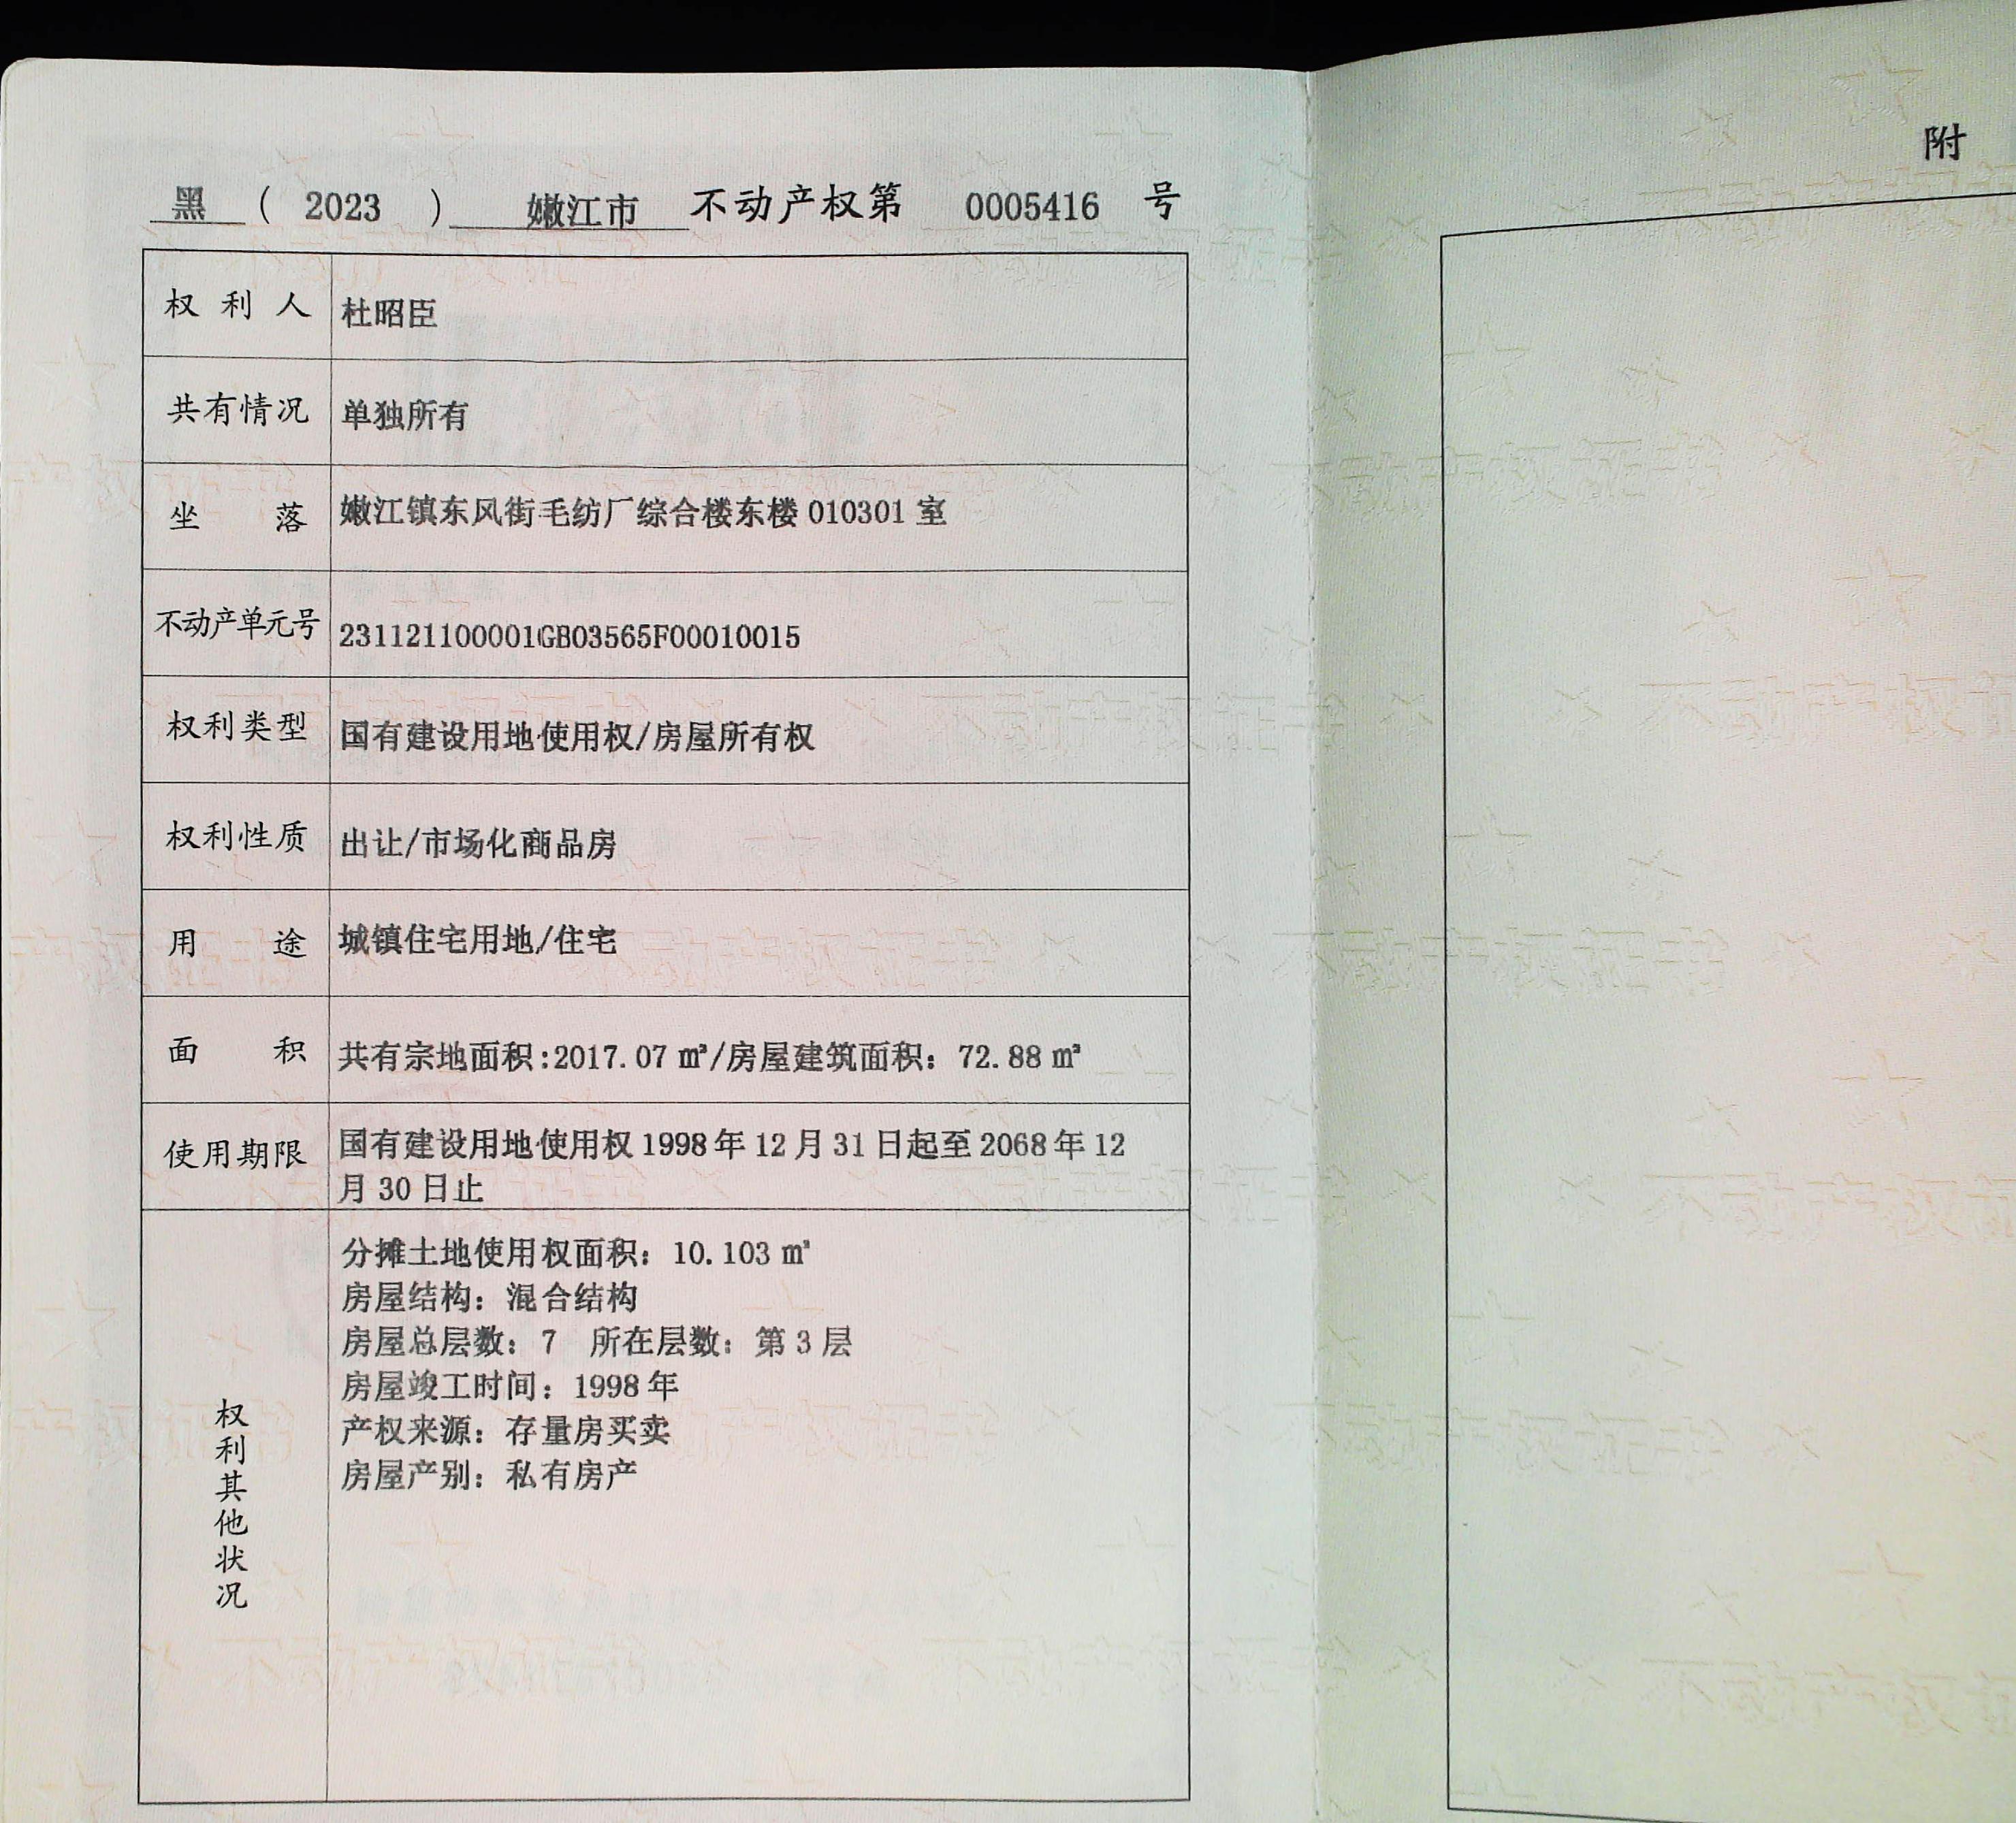 黑 ( 2023 ) 嫩江市 不动产权第 0005416 号
权利人 杜昭臣
共有情况 单独所有
坐落 嫩江镇东风街毛纺厂综合楼东楼 010301 室
不动产单元号 231121100001GB03565F00010015
权利类型 国有建设用地使用权/房屋所有权
权利性质 出让/市场化商品房
用途 城镇住宅用地/住宅
面积 共有宗地面积:2017.07 ㎡/房屋建筑面积：72.88 ㎡
使用期限 国有建设用地使用权 1998 年 12 月 31 日起至 2068 年 12
月 30 日止
权利其他状况
分摊土地使用权面积：10.103 ㎡
房屋结构：混合结构
房屋总层数：7 所在层数：第 3 层
房屋竣工时间：1998 年
产权来源：存量房买卖
房屋产别：私有房产
附